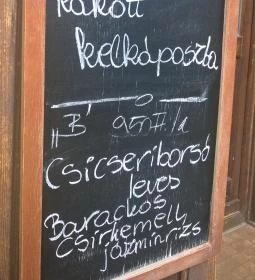 Rakott
kelkáposzta
"B" 950 Ft/a
Csicseriborsó
leves
Barackos
csirkemell
jázminrizs